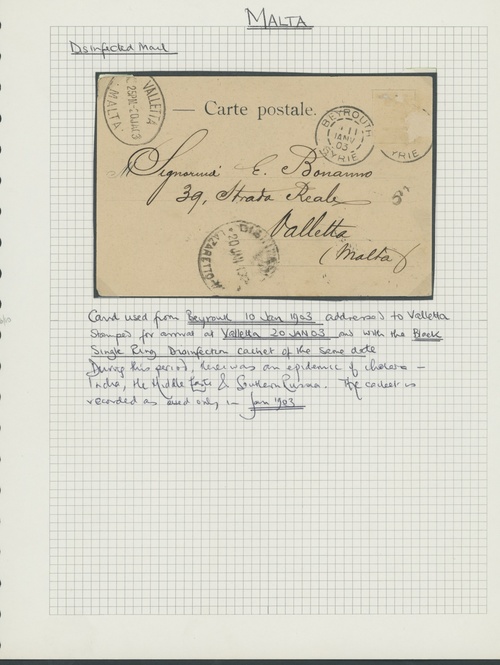 MALTA
Disinfected Mail
VALLETTA
MALTA
— Carte postale.
BEYROUTH
11
JANV
03
SYRIE
YRIE
Signorina E. Bonanno
39, Strada Reale
Valletta
(Malta)
LAZARETTO
20 JAN 1903
Card used from Beyrouth 10 Jan 1903 addressed to Valletta
Stamped for arrival at Valletta 20 JAN 03 and with the Black
Single Ring Disinfection cachet of the same date
During this period, there was an epidemic of cholera —
India, the Middle East & Southern Russia. The cachet is
recorded as used only in Jan 1903